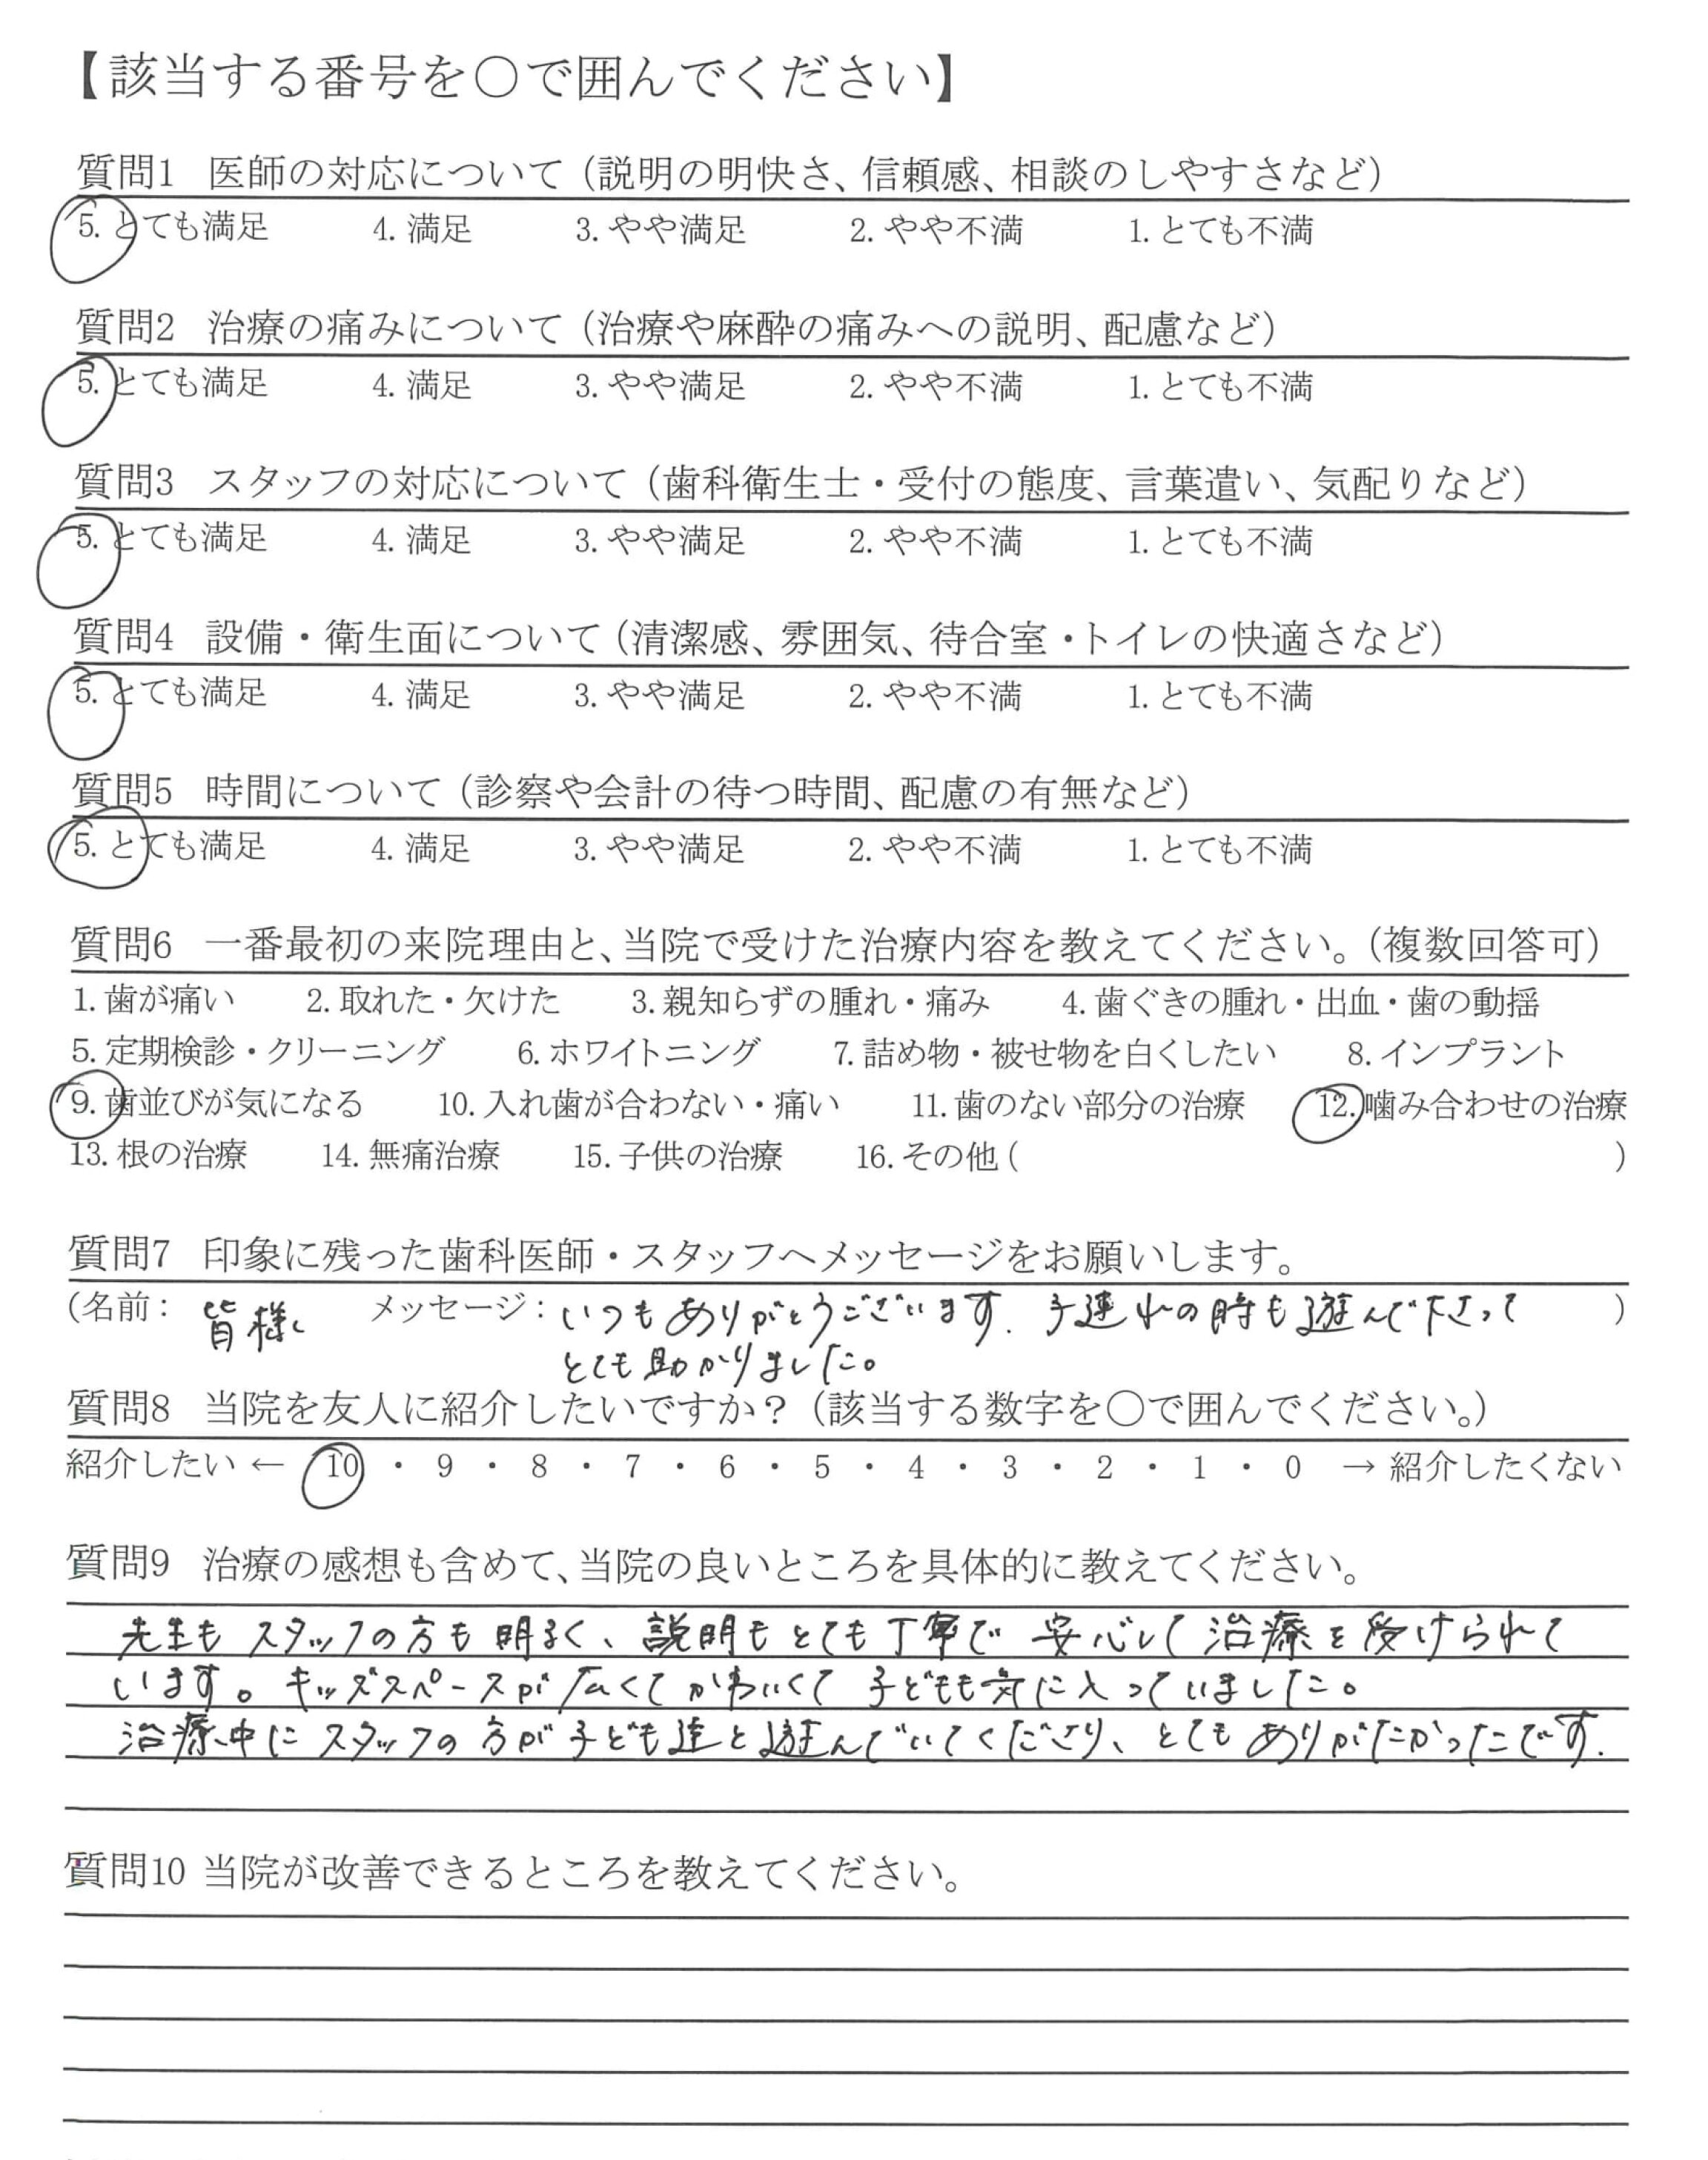 【該当する番号を○で囲んでください】
質問1 医師の対応について（説明の明快さ、信頼感、相談のしやすさなど）
5. とても満足 4. 満足 3. やや満足 2. やや不満 1. とても不満
質問2 治療の痛みについて（治療や麻酔の痛みへの説明、配慮など）
5. とても満足 4. 満足 3. やや満足 2. やや不満 1. とても不満
質問3 スタッフの対応について（歯科衛生士・受付の態度、言葉遣い、気配りなど）
5. とても満足 4. 満足 3. やや満足 2. やや不満 1. とても不満
質問4 設備・衛生面について（清潔感、雰囲気、待合室・トイレの快適さなど）
5. とても満足 4. 満足 3. やや満足 2. やや不満 1. とても不満
質問5 時間について（診察や会計の待つ時間、配慮の有無など）
5. とても満足 4. 満足 3. やや満足 2. やや不満 1. とても不満
質問6 一番最初の来院理由と、当院で受けた治療内容を教えてください。（複数回答可）
1. 歯が痛い 2. 取れた・欠けた 3. 親知らずの腫れ・痛み 4. 歯ぐきの腫れ・出血・歯の動揺
5. 定期検診・クリーニング 6. ホワイトニング 7. 詰め物・被せ物を白くしたい 8. インプラント
9. 歯並びが気になる 10. 入れ歯が合わない・痛い 11. 歯のない部分の治療 12. 噛み合わせの治療
13. 根の治療 14. 無痛治療 15. 子供の治療 16. その他（ ）
質問7 印象に残った歯科医師・スタッフへメッセージをお願いします。
（名前： 皆様 メッセージ：いつもありがとうございます. 子連れの時も遊んで下さって ）
とても助かりました。
質問8 当院を友人に紹介したいですか？（該当する数字を○で囲んでください。）
紹介したい ← 10 ・ 9 ・ 8 ・ 7 ・ 6 ・ 5 ・ 4 ・ 3 ・ 2 ・ 1 ・ 0 → 紹介したくない
質問9 治療の感想も含めて、当院の良いところを具体的に教えてください。
先生もスタッフの方も明るく、説明もとても丁寧で 安心して治療を受けられて
います。キッズスペースが広くてかわいくて 子どもも気に入っていました。
治療中にスタッフの方が子ども達と遊んでいてくださり、とてもありがたかったです.
質問10 当院が改善できるところを教えてください。